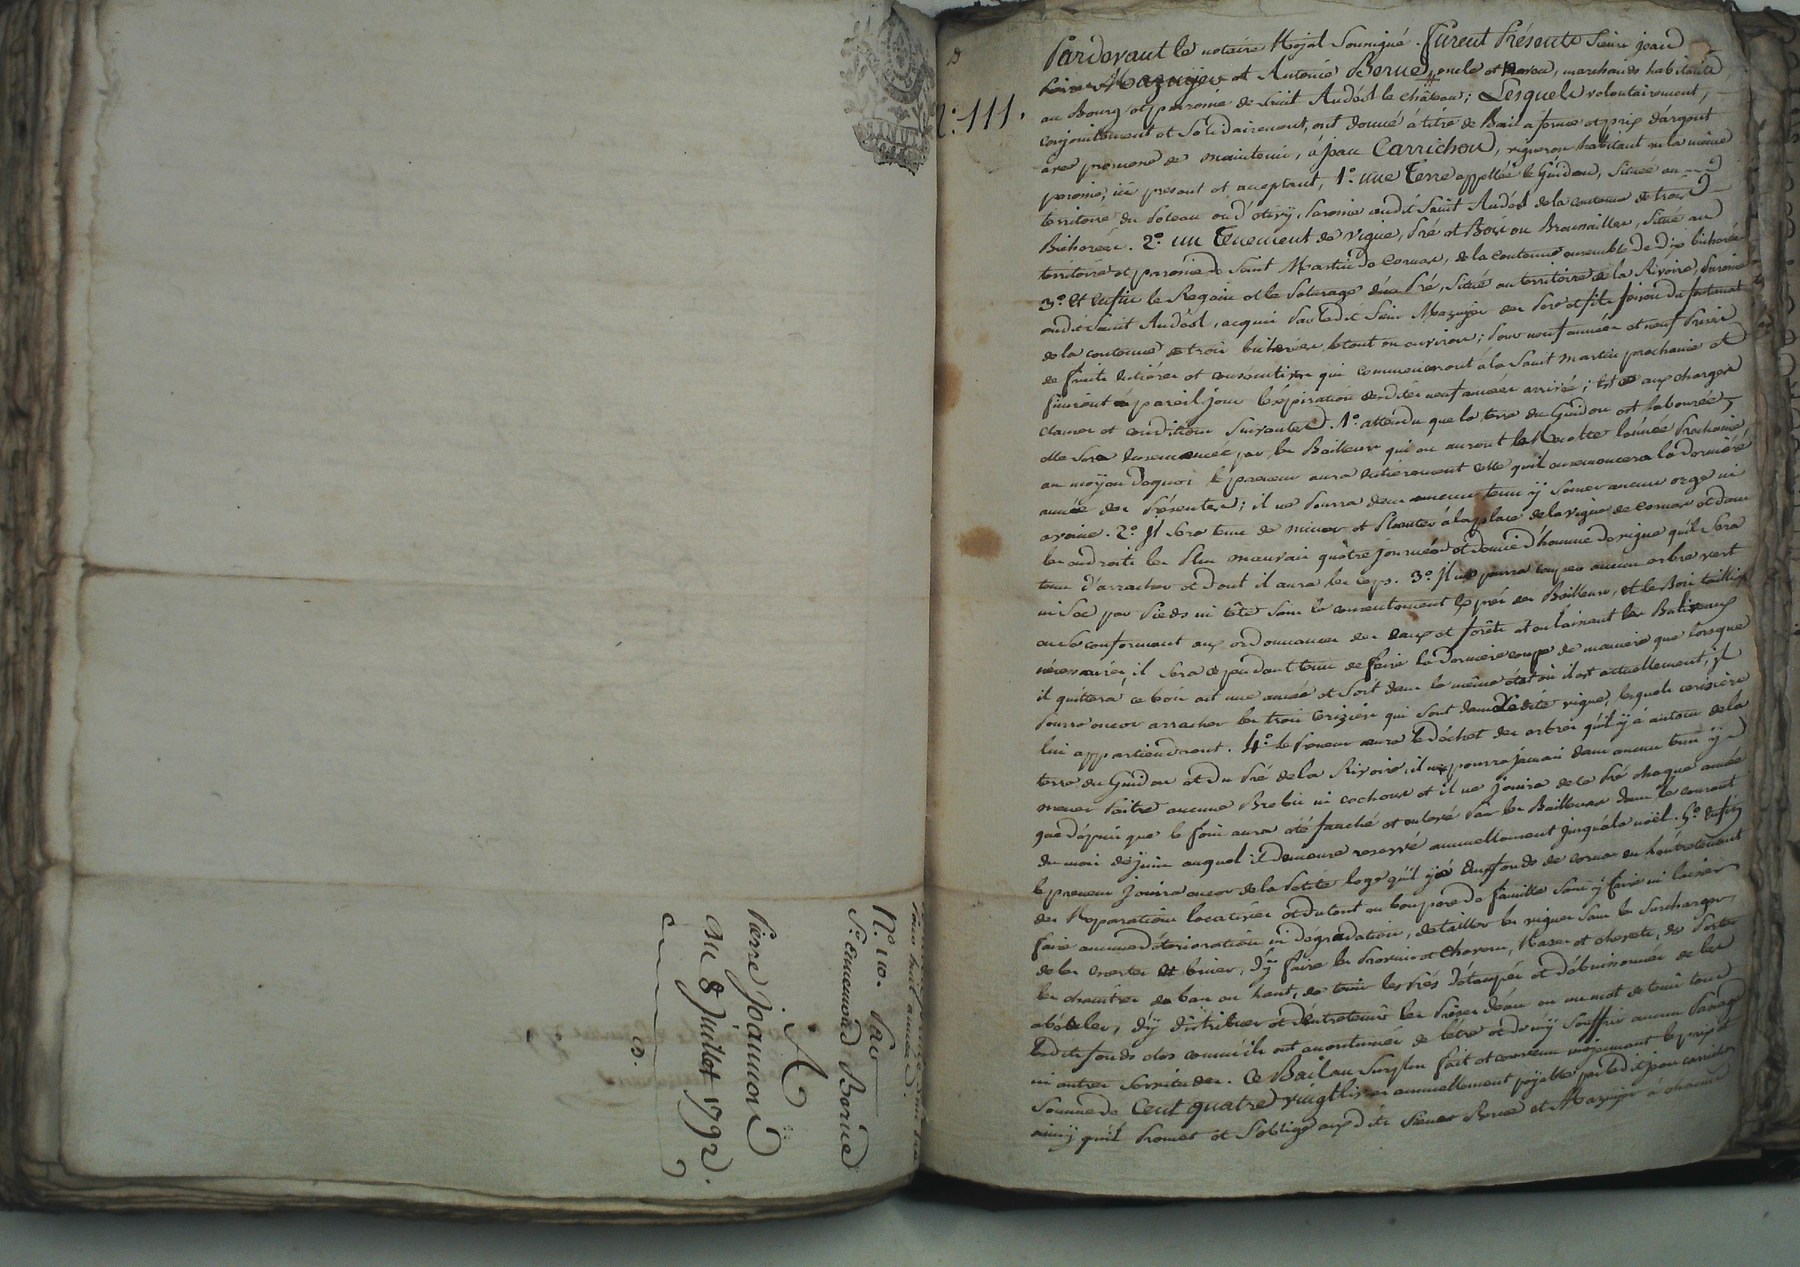 N.° 110. Par
S.r Ennemond Borne
A
Pierre Joannon
Du 8 Juillet 1792.
N.° 111.
Pardevant le notaire Royal Soussigné. Furent Présents Sieurs jean
Mazuyer et Antoine Borne, oncle et neveu, marchands habitants
au Bourg et paroisse de Saint Andéol le château; Lesquels volontairement,
conjointement et Solidairement, ont donné a titre de Bail a ferme et prix d'argent
avec promesse de maintenir, a jean Carrichon, vigneron habitant en la même
paroisse, ici présent et acceptant, 1.° une Terre appellée le Guidou, Située au
territoire du Poteau ou d', Paroisse dudit Saint Andéol de la contenue de trois
Bicherées. 2.° un Tenement de vigne, Pré et Bois ou Broussailles, Situé au
territoire et paroisse de Saint Martin de Cornas, de la contenue ensemble de dix bicherées
3.° et enfin le Regain et le Paturage d'un Pré, Situé au territoire de la Rivoire, Paroisse
dudit Saint Andéol, acquis Par ledit Sieur Mazuyer des Pere et fils
de la contenue de trois bicherées, le tout environ; Pour neuf années et neuf Prises
de fruits entieres et consécutives qui commenceront à la Saint martin prochaine et
finiront a pareil jour l'expiration desdites neuf années arrivée; Et aux charges
clauses et conditions Suivantes. 1.° attendu que la terre du Guidou est labourée,
elle Sera ensemencée par les Bailleurs qui en auront la Recolte l'année Prochaine,
au moyen dequoi le preneur aura entierement celle qu'il ensemencera la derniere
année des Présentes; il ne Pourra dans aucun tems y Semer aucune orge ni
avoine. 2.° Il Sera tenu de miner et Planter à la place de la vigne de Cornas et dans
les endroits les Plus mauvais quatre journées et demie d'homme de vigne qu'il Sera
tenu d'arracher et dont il aura les ceps. 3.° Il ne pourra couper aucun arbre vert
ni Sec par Pieds ni tête Sans le consentement exprès des Bailleurs, et le Bois taillis
en Se conformant aux ordonnances des eaux et forêts et en laissant les Baliveaux
nécessaires, il Sera cependant tenu de faire la derniere coupe de maniere que lorsque
il quittera ce bois ait une année et Soit dans le même état où il est actuellement; il
Pourra encore arracher les trois Cerisiers qui Sont dans Ladite vigne, lesquels cerisiers
lui appartiendront. 4.° Le Preneur aura le déchet des arbres qu'il y a autour de la
terre du Guidou et du Pré de la Rivoire; il ne pourra jamais dans aucun tems y
mener Paitre aucune Brebis ni cochons et il ne jouira de ce Pré chaque année
que depuis que le foin aura été fauché et enlevé Par les Bailleurs dans le courant
du mois de juin auquel il demeure reservé annuellement jusqu'à la noël. 5.° Enfin
le preneur jouira encor de la Petite loge qu'il y a au fonds de Cornas en l'entretenant
des Réparations locatives et du tout en bon pere de famille Sans y faire ni laisser
faire aucune déterioration ni dégradation, de tailler les vignes Sans les Surcharger,
de les et biner, d'y faire les Provins et, Raser et, de Porter
les chaintres de bas en haut, de tenir les Prés détaupés et débuissonnés de les
, d'y distribuer et d'entretenir les Prises d'eau en un mot de tenir tous
lesdits fonds clos comme ils ont accoutumés de l'être et de n'y Souffrir aucun Passage
ni autres Servitudes. Ce Bail au Surplus fait et convenu moyennant le prix et
Somme de Cent quatre vingt livres annuellement payable par ledit jean carrichon
ainsy qu'il Promet et S'oblige auxdits Sieurs Borne et Mazuyer à chacune